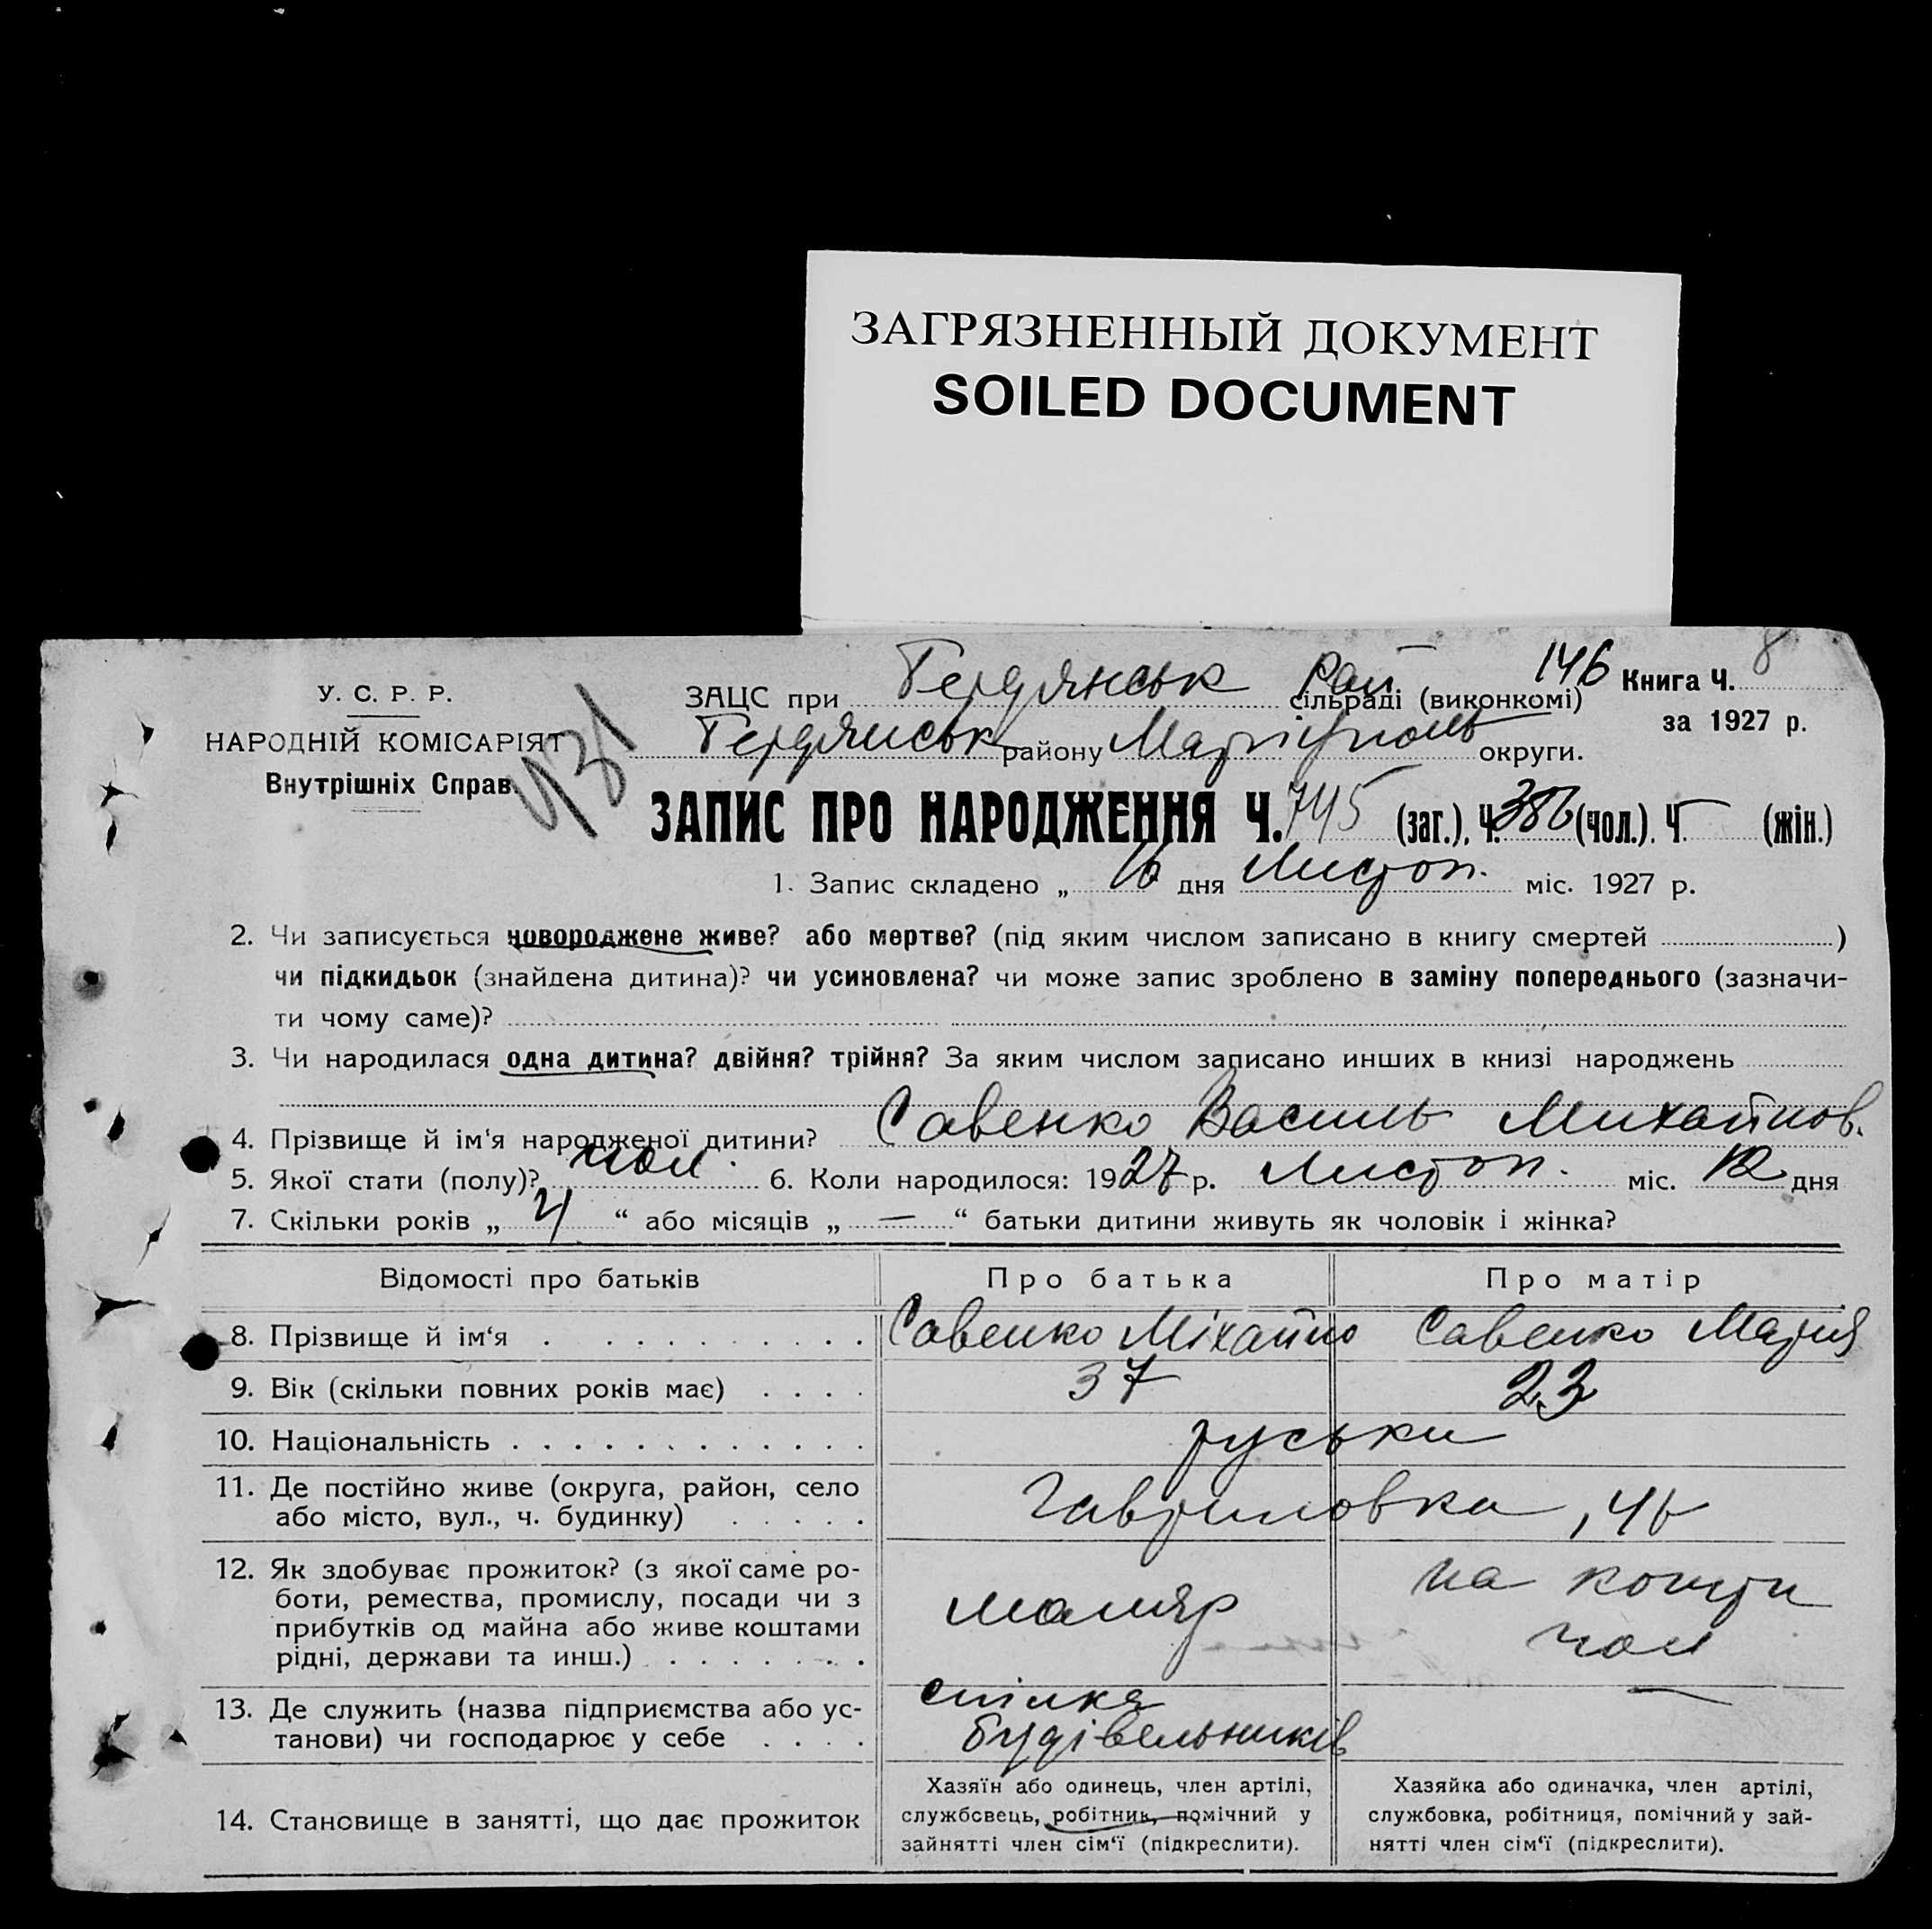 ЗАГРЯЗНЕННЫЙ ДОКУМЕНТ
SOILED DOCUMENT
У. С. Р. Р.
НАРОДНІЙ КОМІСАРІЯТ
Внутрішніх Справ.
431
ЗАЦС при Бердянськ Рай сільраді (виконкомі)
146 Книга Ч. 8
Бердянськ району Маріуполь округи.
за 1927 р.
ЗАПИС ПРО НАРОДЖЕННЯ Ч. 745 (заг.), Ч. 386 (чол.). Ч. — (жін.)
1. Запис складено „ 16 дня Листоп. міс. 1927 р.
2. Чи записується новороджене живе? або мертве? (під яким числом записано в книгу смертей )
чи підкидьок (знайдена дитина)? чи усиновлена? чи може запис зроблено в заміну попереднього (зазначи-
ти чому саме)?
3. Чи народилася одна дитина? двійня? трійня? За яким числом записано инших в книзі народжень
4. Прізвище й ім'я народженої дитини? Савенко Василь Михайлов.
5. Якої стати (полу)? чол. 6. Коли народилося: 1927 р. Листоп. міс. 12 дня
7. Скільки років „ 4 “ або місяців „ — “ батьки дитини живуть як чоловік і жінка?
Відомості про батьків Про батька Про матір
8. Прізвище й ім'я . . . . . . . . . . Савенко Міхайло Савенко Мария
9. Вік (скільки повних років має) . . . . 37 23
10. Національність . . . . . . . . . . . . . руськи
11. Де постійно живе (округа, район, село
або місто, вул., ч. будинку) . . . . . Гавриловка,
12. Як здобуває прожиток? (з якої саме ро-
боти, ремества, промислу, посади чи з
прибутків од майна або живе коштами
рідні, держави та инш.) . . . . . . .
маляр
на кошти
чол
13. Де служить (назва підприємства або ус-
танови) чи господарює у себе . . . .
спілка
будівельників
—
14. Становище в занятті, що дає прожиток
Хазяїн або одинець, член артілі,
службовець, робітник, помічний у
зайнятті член сім'ї (підкреслити).
Хазяйка або одиначка, член артілі,
службовка, робітниця, помічний у зай-
нятті член сім'ї (підкреслити).